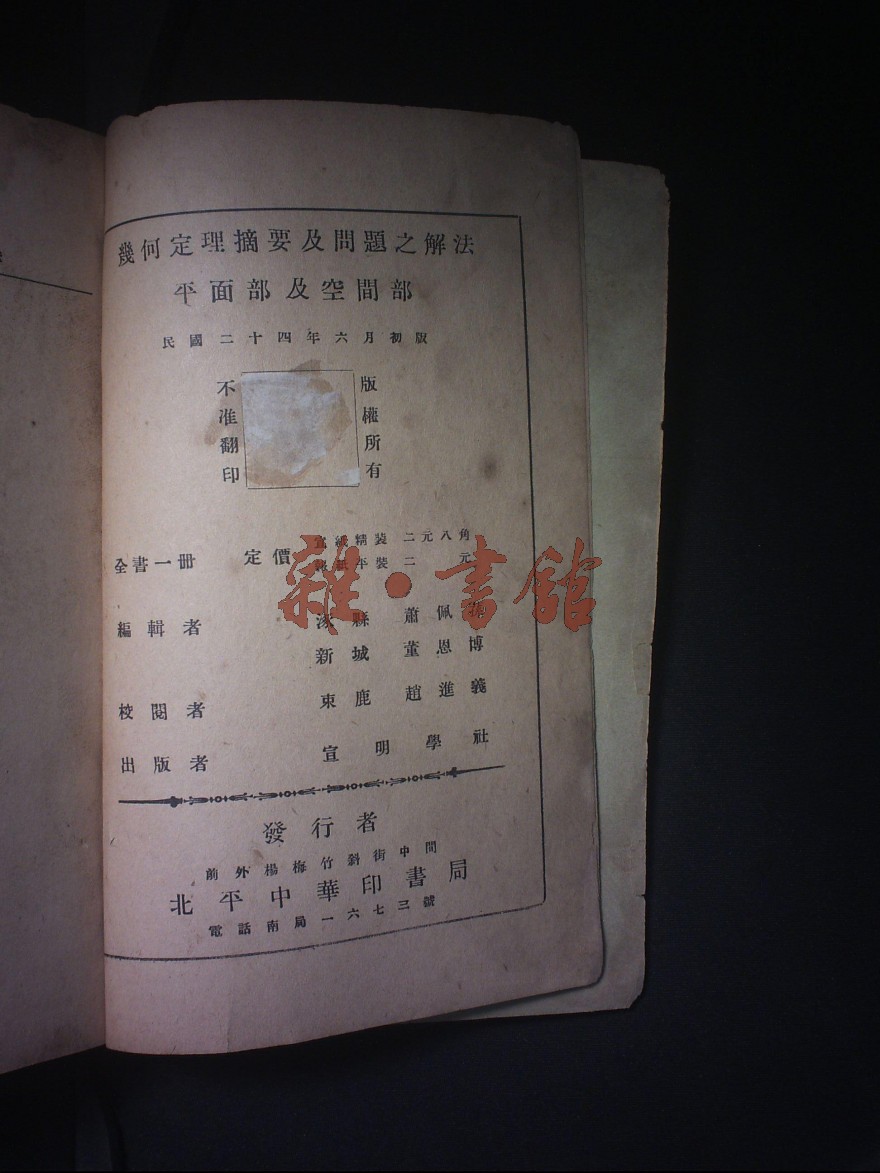 幾何定理摘要及問題之解法
平面部及空間部
民國二十四年六月初版
版權所有
不准翻印
全書一冊 定價
紙精裝 二元八角
紙平裝 二元
編輯者 涿縣 蕭佩
新城 董恩博
校閱者 束鹿 趙進義
出版者 宣明學社
發行者
前外楊梅竹斜街中間
北平中華印書局
電話南局一六七三號
雜·書館